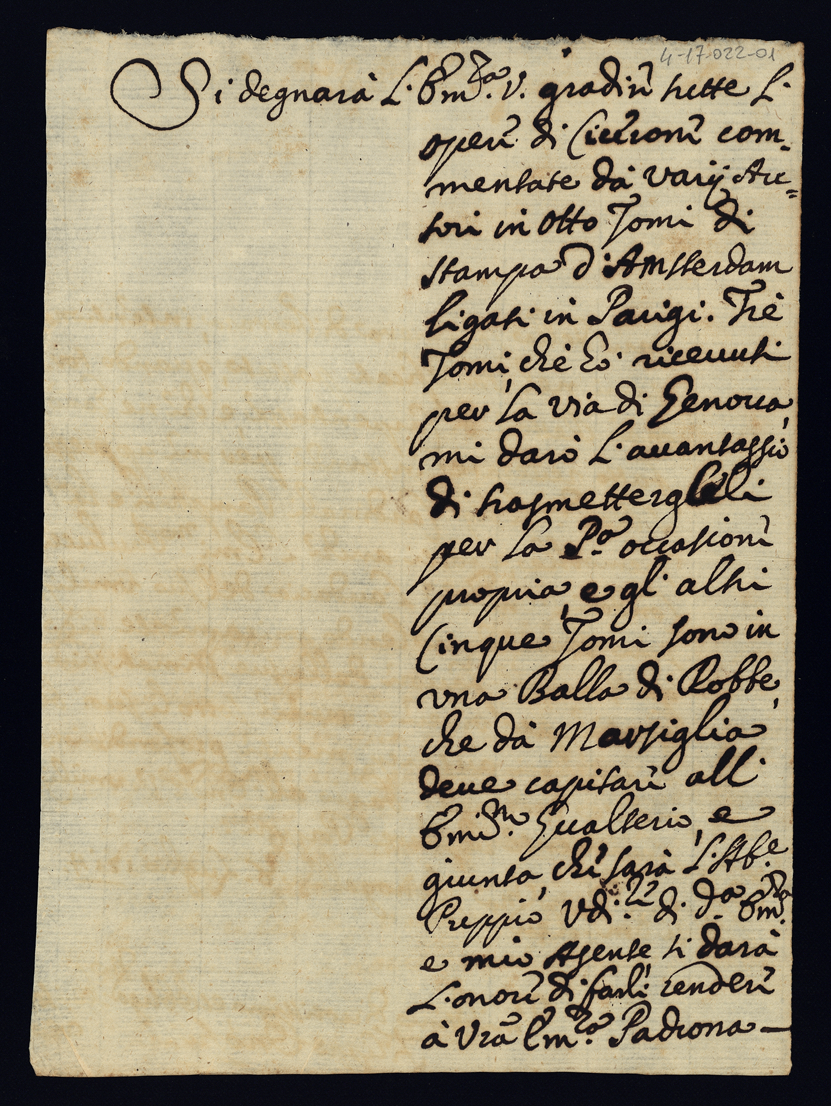 4-17-022-01
Si degnarà L'Em.za V. gradire tutte L'
opere di Cicerone com-
mentate da varij Au=
tori in Otto Tomi di
stampa d'Amsterdam
ligati in Parigi. Trè
Tomi, che hò ricevuti
per la via di Genova,
mi darò l'avantaggio
di trasmetterglieli
per la P.a occasione
propria e gl'altri
Cinque Tomi sono in
una Balla di Robbe,
che da Marsiglia
deve capitare all'
Emin.mo Gualterio, e
giunta, che sarà L'Ab.e
Preppiò Vdi.re di d.a Em.za
e mio Agente si darà
L'onore di farli rendere
à Vrã Em.za Padrona —